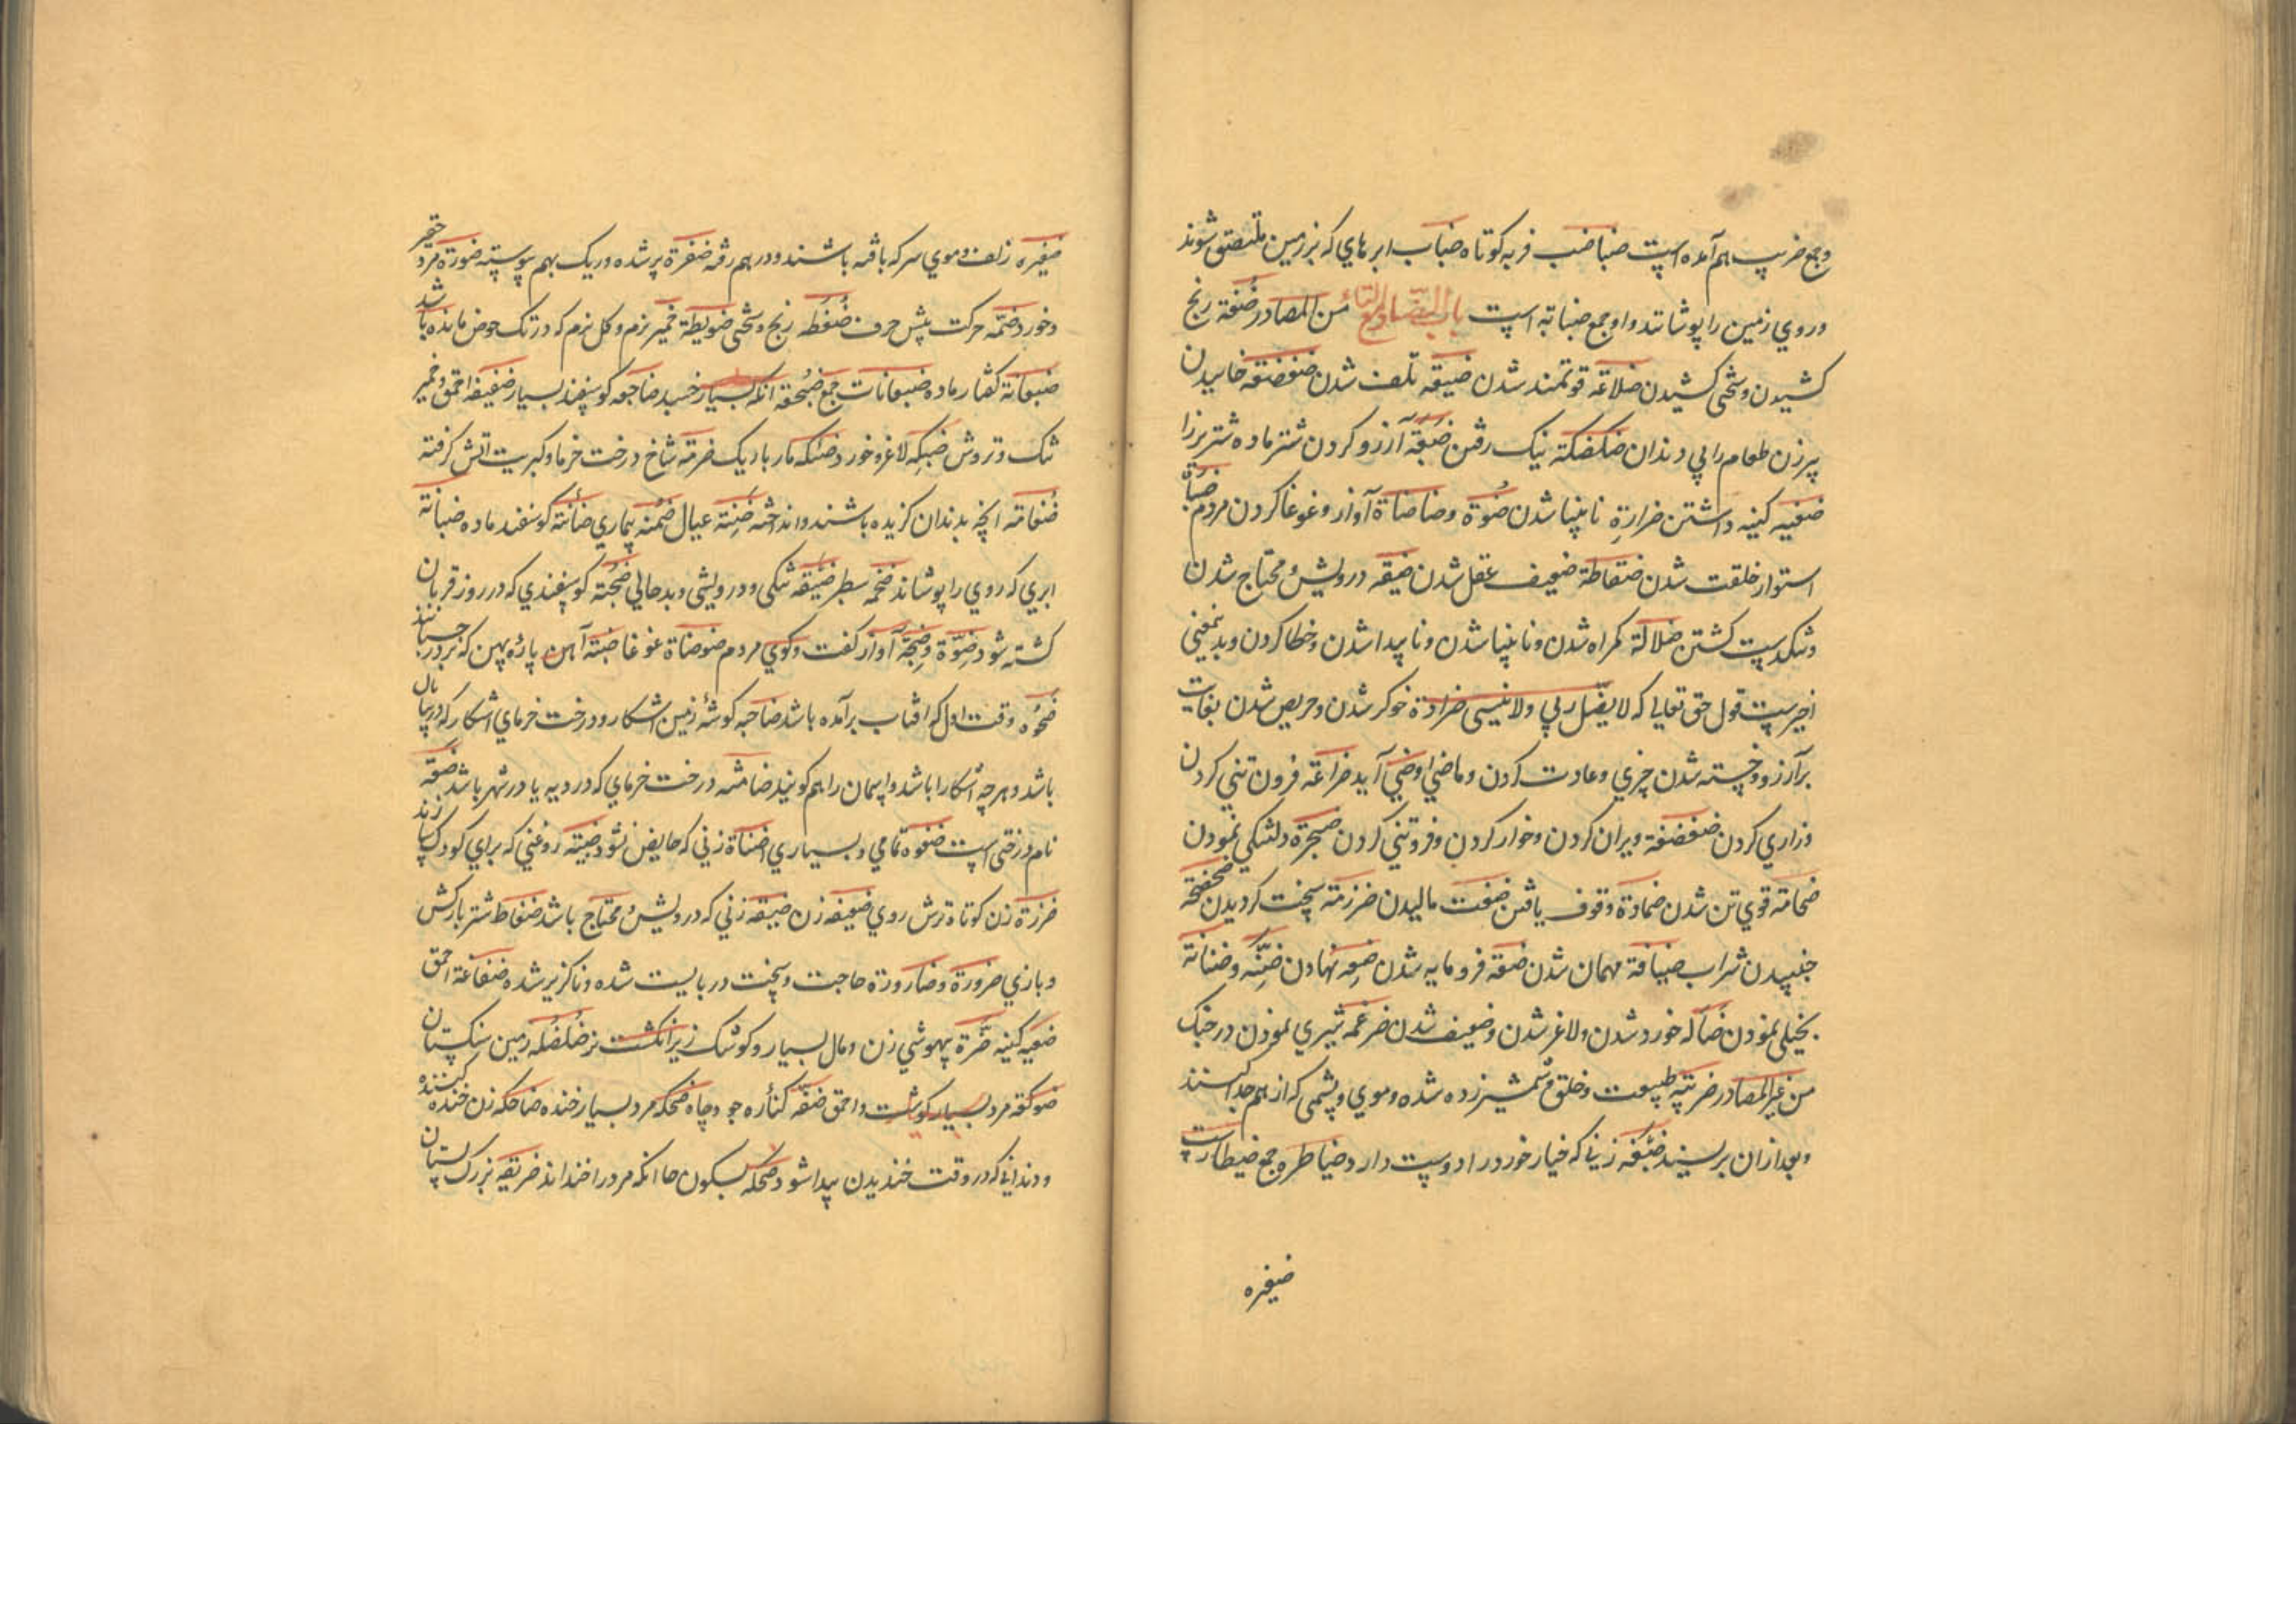 و جمع ضریب هم آمده است ضباضب فربه کوتاه ضباب ابرهاي که بر زمین ملتصق شوند
و روي زمین را پوشانند و او جمع ضبابة است باب الضاد مع التاء من المصادر ضغفة رنج
کشیدن و سختی کشیدن ضلاعة قوتمند شدن ضیقه تلف شدن ضغضغه خاییدن
پیرزن طعام را بي دندان ضکضکة نیک رفتن ضبعة آرزو کردن شتر ماده شتر نر را
ضغیه کینه داشتن ضرارة نابینا شدن ضوة و ضاضاة آواز و غوغا کردن مردم ضباة
استوار خلقت شدن ضفاطة ضعیف عقل شدن ضیقه درویش و محتاج شدن
و تنکدست کشتن ضلالة کمراه شدن و نابینا شدن و ناپیدا شدن و خطا کردن و بدین معنی
اخیرست قول حق تعالی که لا یضل ربي ولا ینسی ضراوة خوکر شدن و حریص شدن بغایت
بر آرزو و خسته شدن چیزي و عادت کردن و ماضي او ضري آید ضراعة فروتني کردن
و زاري کردن ضعضعة ویران کردن و خوار کردن و فروتني کردن ضجرة دلتنکي نمودن
ضخامة قوي تن شدن ضمادة وقوف یافتن ضفت مالیدن ضرزمة سخت کردیدن ضحضحة
جنبیدن شراب ضیافة مهمان شدن ضعة فرومایه شدن ضعه نهادن ضنة و ضنانة
بخیلي نمودن ضآلة خورد شدن و لاغر شدن و ضعیف شدن ضرغمة شیري نمودن در جنک
من غیر المصادر ضریبة طبیعت و خلق و شمشیر زده شده و موي و پشمي که از هم جدا کنند
و بعد از آن بریسند زني که خیار خورد را دوست دارد ضیاطره جمع ضیطارست
ضفیره
ضفیرة زلف و موي سر که بافته باشند و در هم رفته ضفرة پر شده و ریک بهم پیوسته ضورة مرد حقیر
و خورد ضمه حرکت پیش حرف ضغطه رنج و سختي ضویطة خمیر نرم و کل نرم که در تک حوض مانده باشد
ضبعانة کفتار ماده ضبعانات جمع ضجعة آنکه بسیار خسبد ضاجعه کوسفند بسیار ضغیغه احمق و خمیر
تنک و تروش لاغر و خورد ضئکه مار باریک ضرمة شاخ درخت خرما و کبریت آتش کرفته
ضغامة آنچه بدندان کزیده باشند و انداخته ضنة عیال ضمنه بیماري ضائنة کوسفند ماده ضبابة
ابري که روي را پوشاند ضخمه سطبر ضیقه تنکي و درویشي و بدحالي ضحیة کوسفندي که در روز قربان
کشته شود ضوة و ضجة آواز کفت و کوي مردم ضوضاة غوغا ضبة آهن پاره پهن که بر در چسبانند
ضحوه وقت اول که آفتاب برآمده باشد ضاحیه کوشهٔ زمین آشکار و درخت خرماي آشکار که در بیابان
باشد و هر چه آشکارا باشد و آسمان را هم کویند ضامنه درخت خرماي که در دیه یا در شهر باشد ضعة
نام درختي است ضفوه تمامي و بسیاري ضهیاة زني که حایض نشود ضبیة روغني که براي کودک پزند
ضرزة زن کوتاه ترش روي ضعیفه زن ضیقه زني که درویش و محتاج باشد ضفاط شتر بارکش
و بازي ضرورة و ضارورة حاجت و سخت در بایست شده و ناکزیر شده ضفاعة احمق
ضغیه کینه ضرة بیهوشي زن و مال بسیار و کوشک زیر انکشت نر ضلضله زمین سنکستان
ضوکعة مرد بسیار کوشت و احمق ضفة کناره جو و چاه ضحکه مرد بسیار خنده ضاحکه زن خنده کننده
و دنداني که در وقت خندیدن پیدا شود ضحکه بسکون حا آنکه مردم را خنداند بزرک پستان